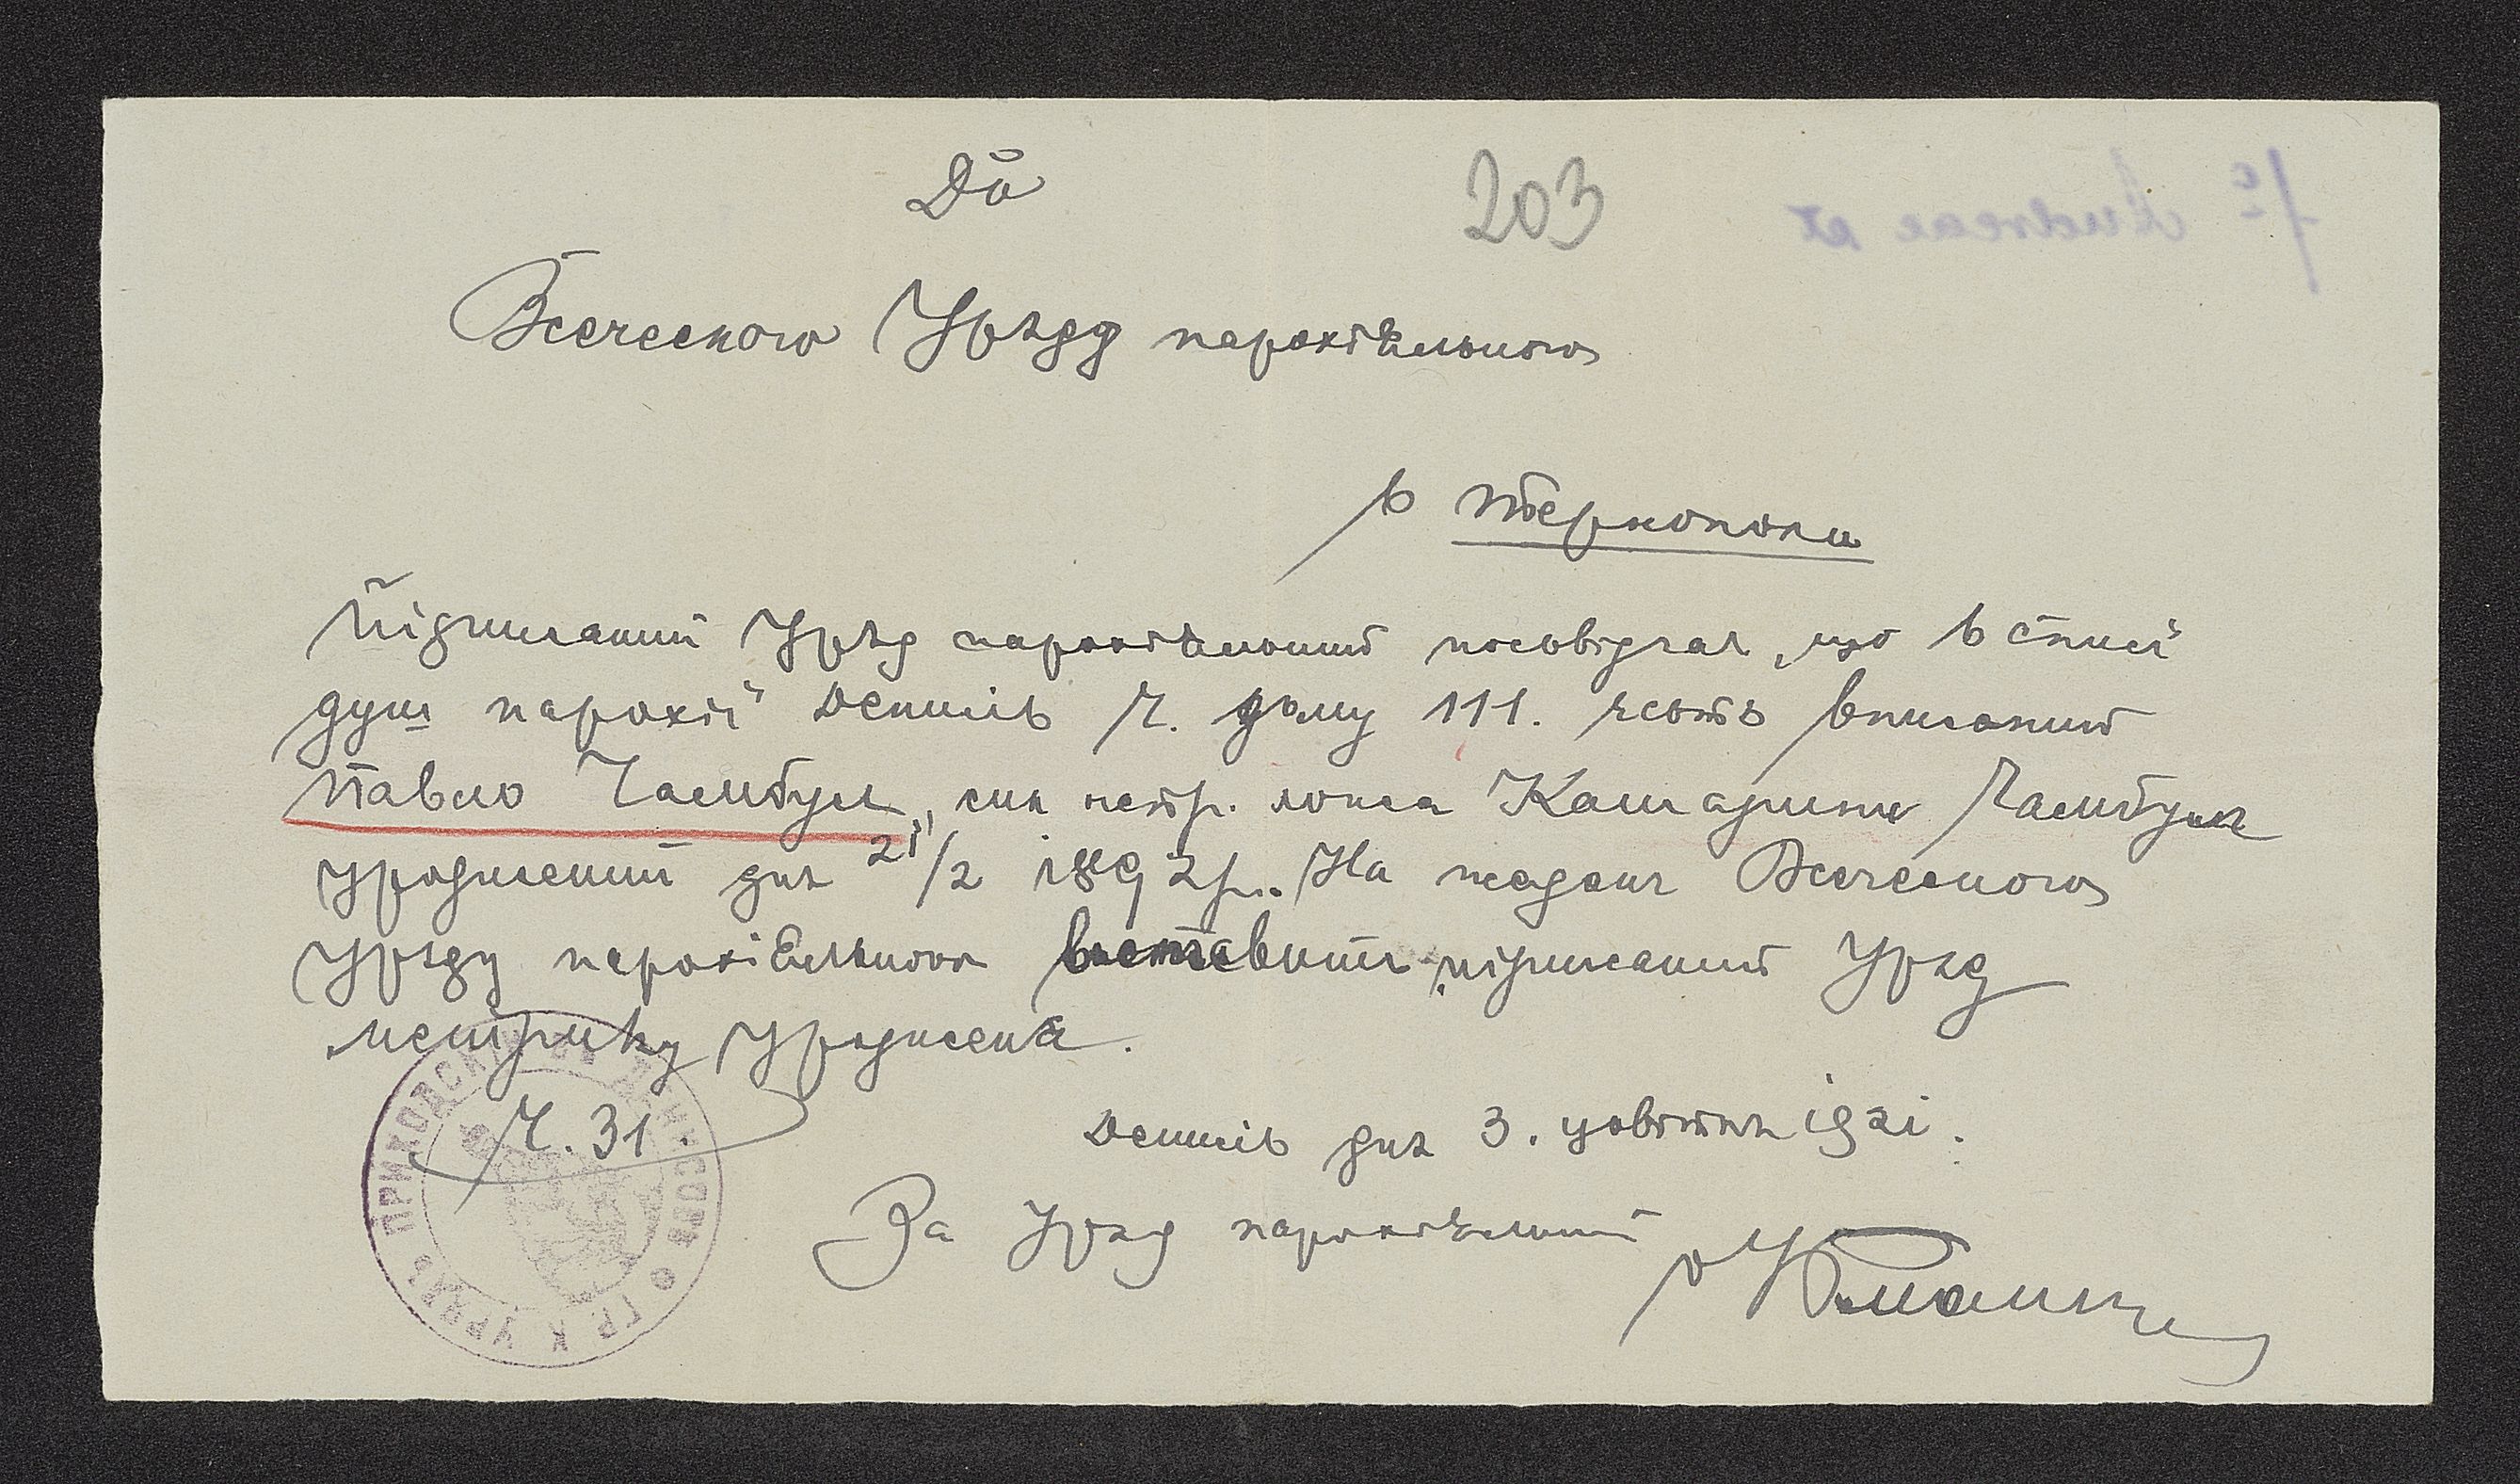 До
203
Всечесного Уряду парохіяльного
в Тернополи
Підписаний Уряд парохіяльний посьвідчає, що в спись
душ парохії Денисів Ч. дому 111. єсть вписаний
Павло Чамбул, син Катарини Чамбул
уроджений дня 21/2 1892 р. На жаданє Всечесного
Уряду парохіяльного виставить підписаний Уряд
метрику уродженя.
Ч. 31.
Денисів дня 3. цовтня 1921.
За Уряд парохіяльний
ГР. К. УРЯДЪ ПРИХОДСКІЙ